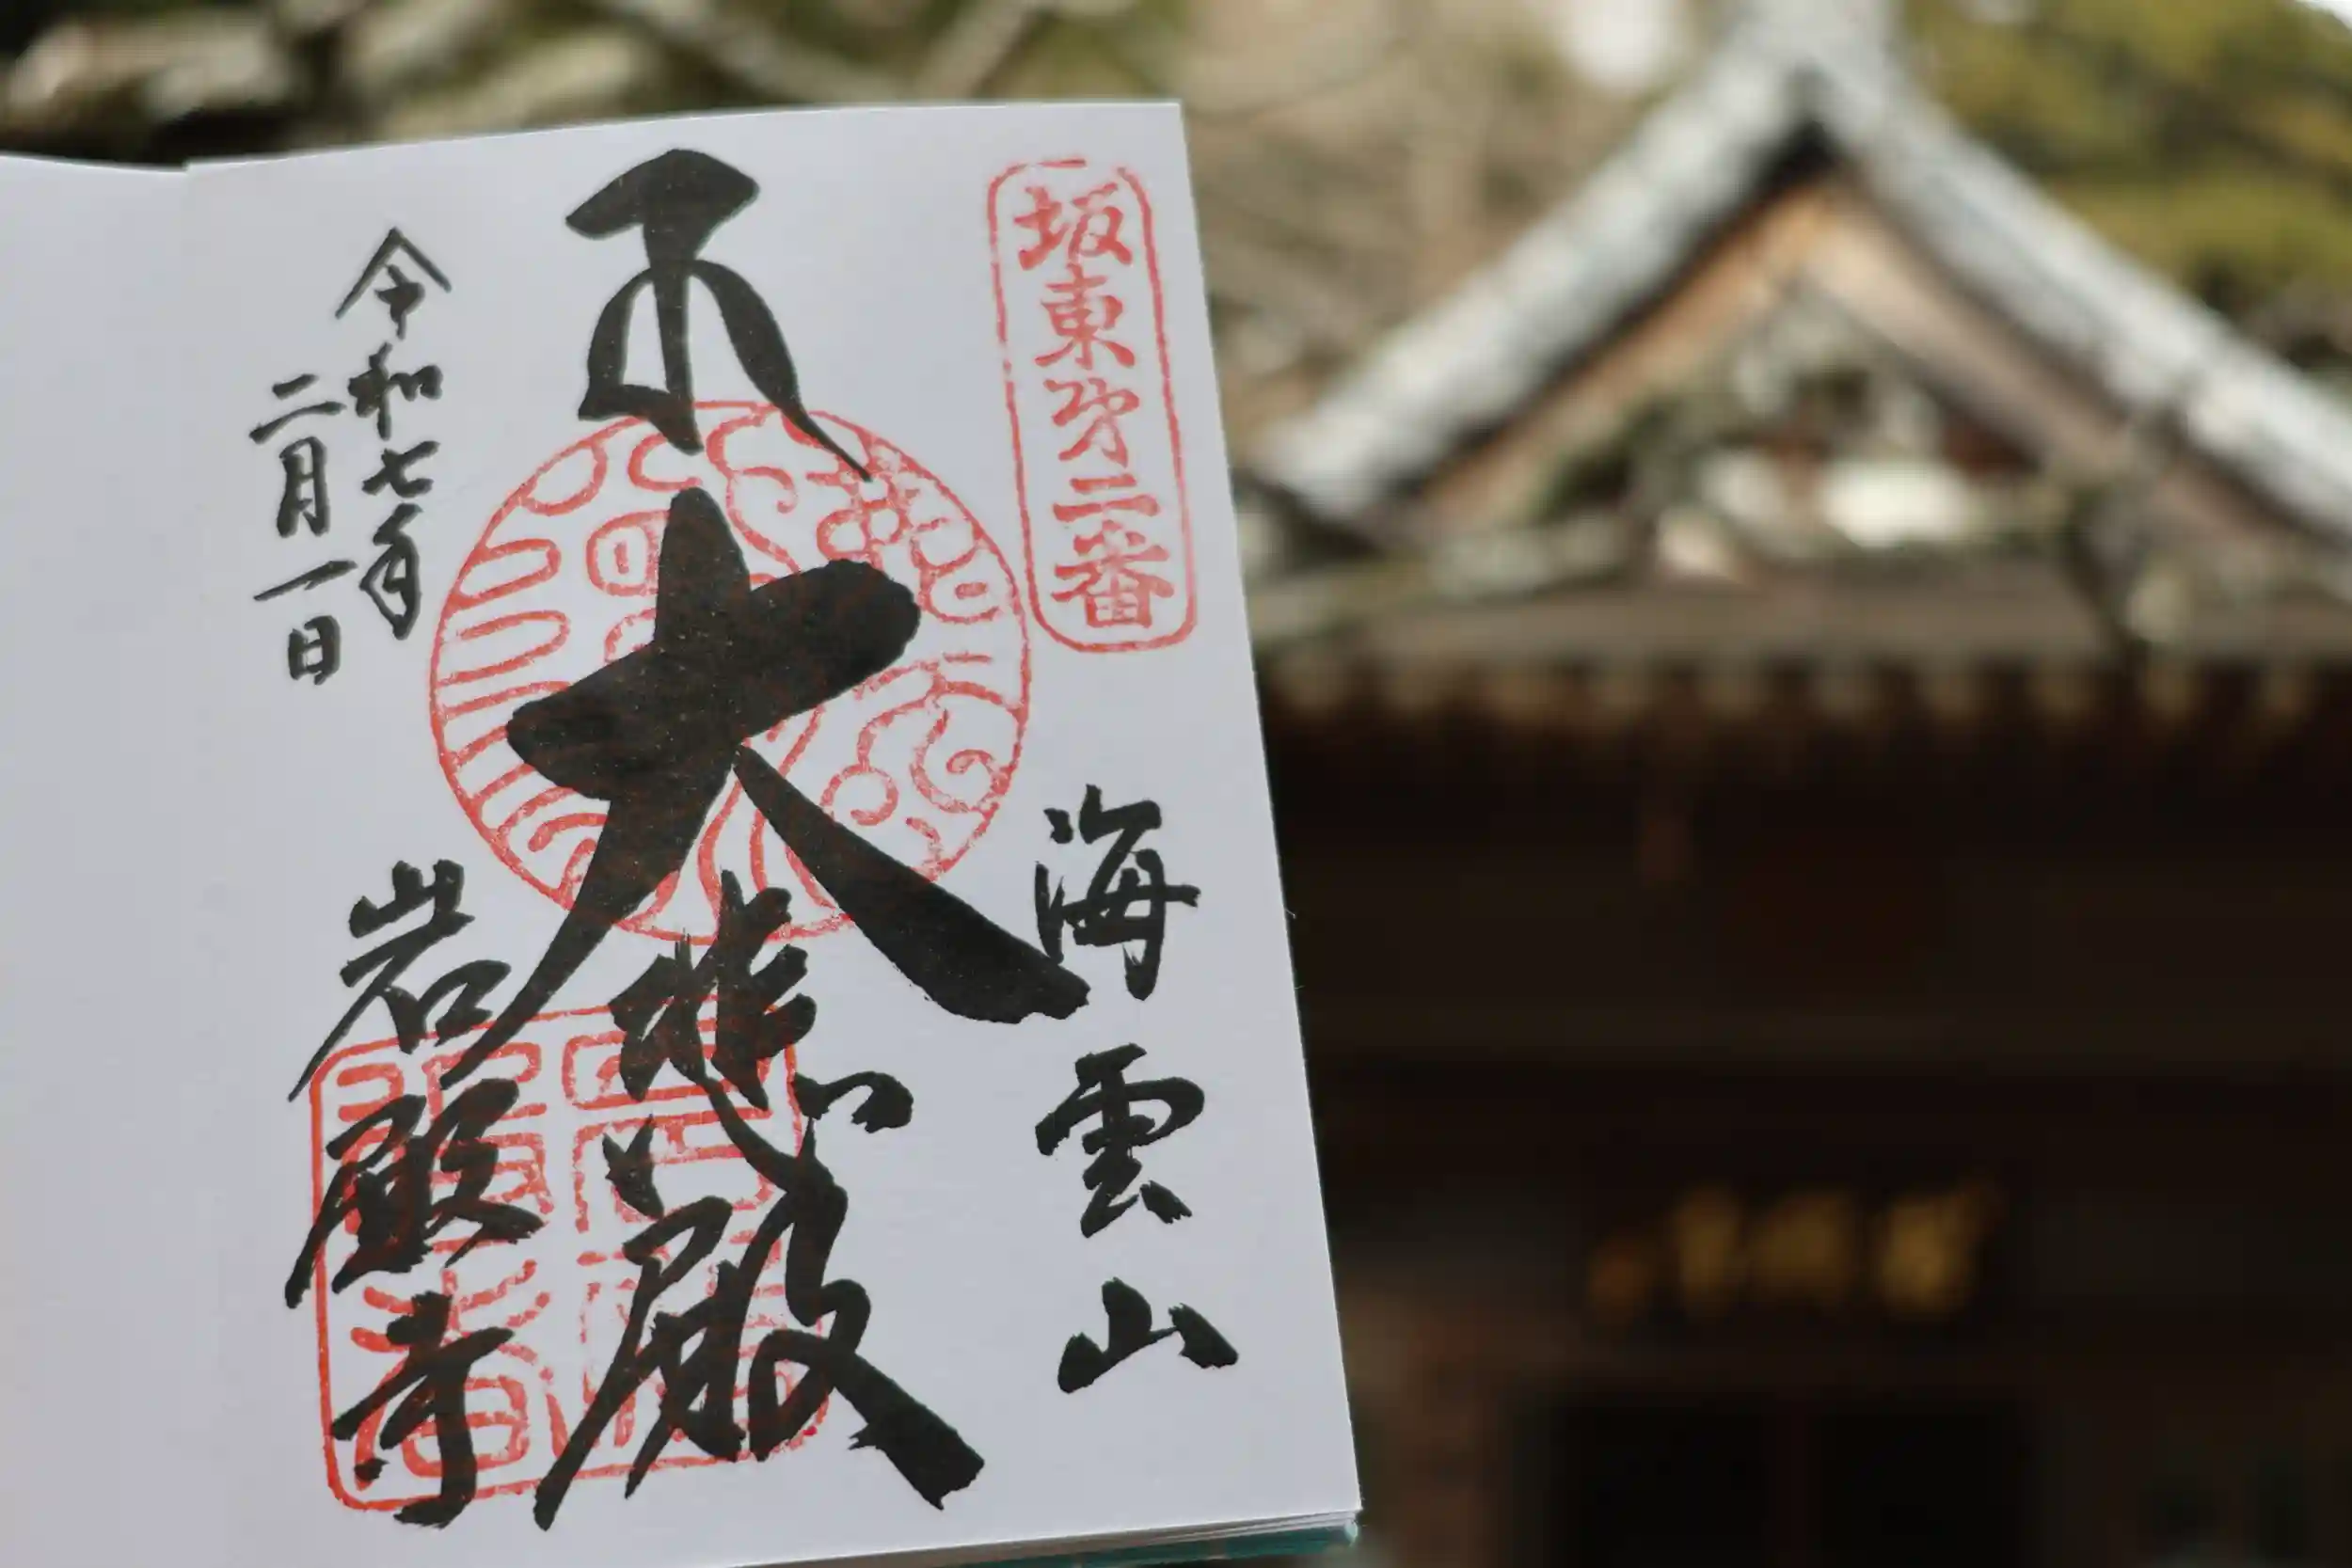 坂東第二番
海雲山
大悲殿
令和七年
二月一日
岩殿寺